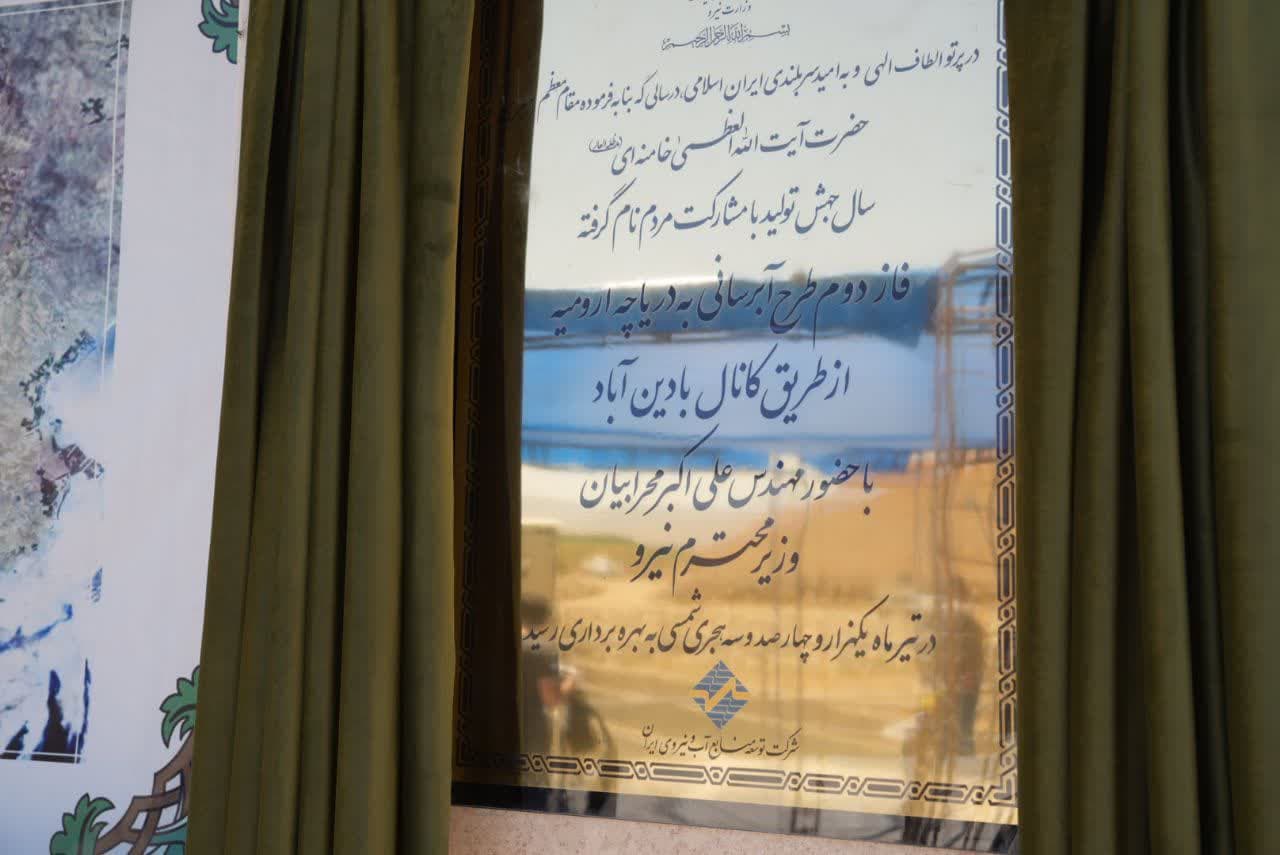 وزارت نیرو
بسم الله الرحمن الرحیم
در پرتو الطاف الهی و به امید سربلندی ایران اسلامی، در سالی که بنا به فرموده مقام معظم
حضرت آیت الله العظمی خامنه ای
سال جهش تولید با مشارکت مردم نام گرفته
فاز دوم طرح آبرسانی به دریاچه ارومیه
از طریق کانال بادین آباد
با حضور مهندس علی اکبر محرابیان
وزیر محترم نیرو
در تیر ماه یکهزار و چهارصد و سه هجری شمسی به بهره برداری رسید
شرکت توسعه منابع آب و نیروی ایران